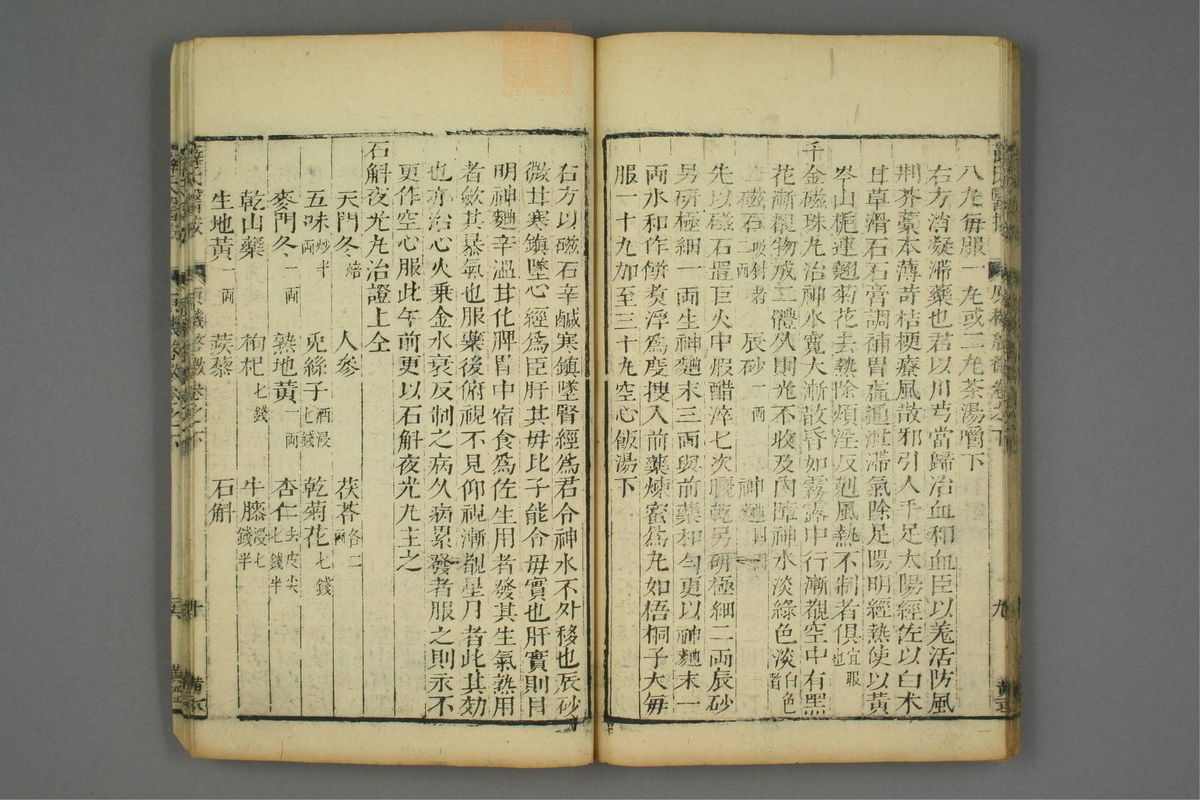 八丸每服一丸或二丸茶湯嚼下
右方消凝滯藥也君以川芎當歸治血和血臣以羗活防風
荆芥藁本薄荷桔梗療風散邪引入手足太陽經佐以白术
甘草滑石石膏調補胃虛通泄滯氣除足陽明經熱使以黃
芩山梔連翹菊花去熱除煩淫反剋風熱不制者俱宜服也
千金磁珠丸治神水寬大漸散昏如霧露中行漸覩空中有黑
花漸覩物成二體久則光不收及內障神水淡綠色淡白色
磁石吸針者二兩 辰砂一兩 神麯四兩
先以磁石置巨火中煅醋淬七次晒乾另研極細二兩辰砂
另研極細一兩生神麯末三兩與前藥和勻更以神麯末一
兩水和作餅煑浮爲度搜入前藥煉蜜爲丸如梧桐子大每
服一十丸加至三十丸空心飯湯下
右方以磁石辛鹹寒鎮墜腎經爲君令神水不外移也辰砂
微甘寒鎮墜心經爲臣肝其毋比子能令毋實也肝實則目
明神麯辛溫甘化脾胃中宿食爲佐生用者發其生氣熟用
者斂其暴氣也服藥後俯視不見仰視漸覩星月者此其効
也亦治心火乗金水衰反制之病久病累發者服之則永不
更作空心服此午前更以石斛夜光丸主之
石斛夜光丸治證上仝
天門冬焙 人參 茯苓各二兩
五味炒半兩 兎絲子酒浸七錢 乾菊花七錢
麥門冬一兩 熟地黃一兩 杏仁去皮尖七錢半
乾山藥 枸杞七錢 牛膝浸七錢半
生地黃一兩 蒺藜 石斛